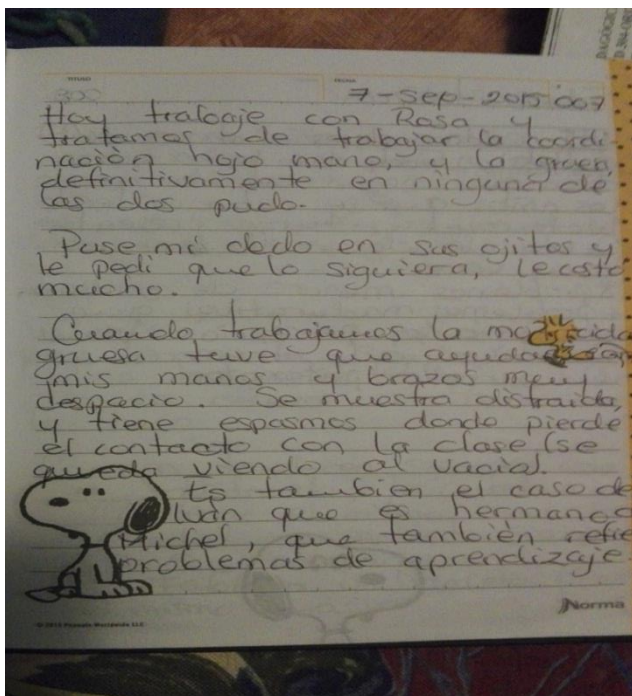 7-Sep-2015
Hoy trabaje con Rosa y
tratamos de trabajar la coordi
nación hojo mano, y la gruesa,
definitivamente en ninguna de
las dos pudo.
Puse mi dedo en sus ojitos y
le pedi que lo siguiera, le costo
mucho.
Cuando trabajamos la
gruesa tuve que
mis manos y brazos muy
despacio. Se muestra distraida,
y tiene espasmos donde pierde
el contacto con la clase (se
queda viendo al vacio).
Es tambien el caso de
Iván que es hermano
Michel, que también refie
problemas de aprendizaje
Norma